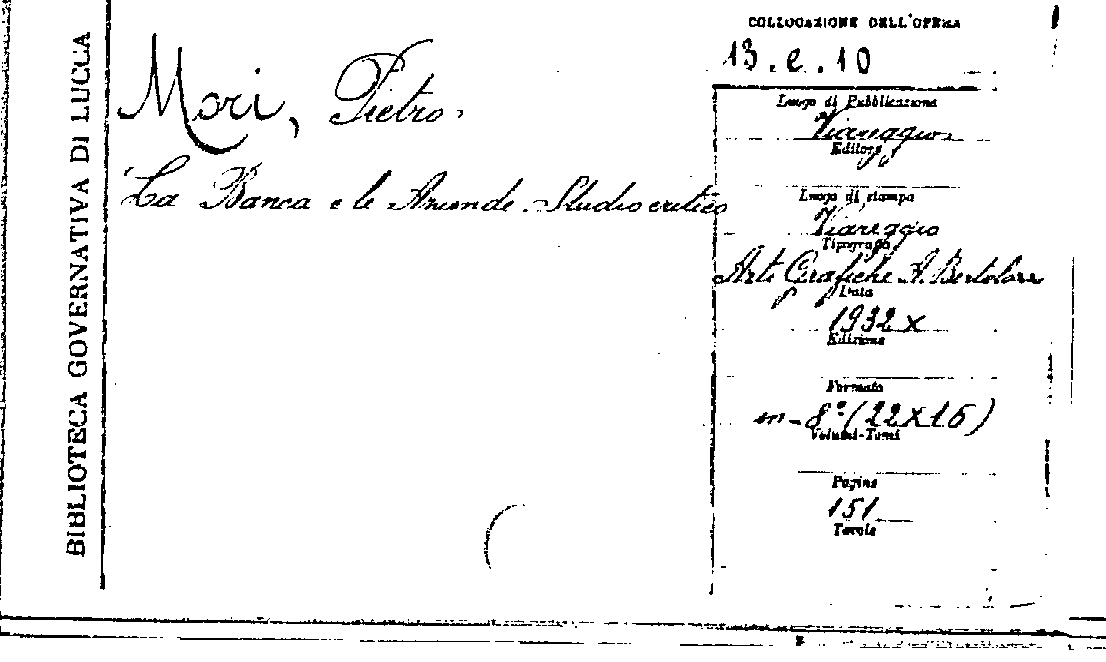 BIBLIOTECA GOVERNATIVA DI LUCCA
Mori, Pietro.
La Banca e le Aziende. Studio critico
COLLOCAZIONE DELL'OPERA
13.e.10
Luogo di Pubblicazione
Viareggio
Editore
Luogo di stampa
Viareggio
Tipografo
Arti Grafiche A. Bertolozzi
Data
1932 X
Edizione
Formato
in-8° (22X16)
Volumi-Tomi
Pagine
151
Tavole